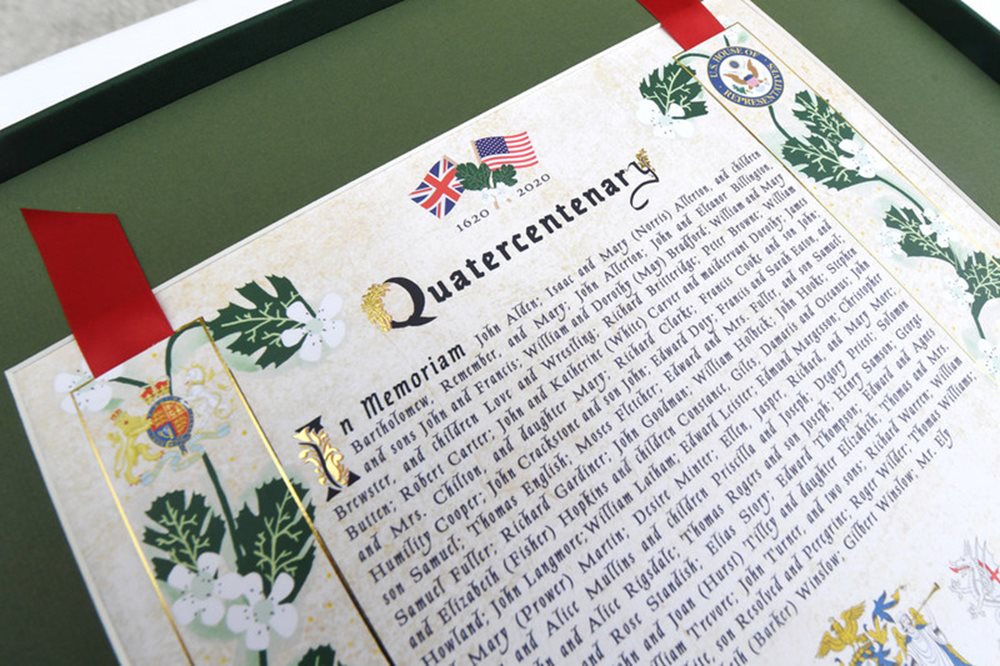 U.S. HOUSE OF REPRESENTATIVES
1620 2020
Quatercentenary
In Memoriam John Alden; Isaac and Mary (Norris) Allerton, and children
Bartholomew, Remember, and Mary; John Allerton; John and Eleanor Billington,
and sons John and Francis; William and Dorothy (May) Bradford; William and Mary
Brewster, and children Love and Wrestling; Richard Britteridge; Peter Browne; William
Butten; Robert Carter; John and Katherine (White) Carver and maidservant Dorothy; James
and Mrs. Chilton, and daughter Mary; Richard Clarke; Francis Cooke and son John;
Humility Cooper; John Crackstone and son John; Edward Doty; Francis and Sarah Eaton and
son Samuel; Thomas English; Moses Fletcher; Edward and Mrs. Fuller, and son Samuel;
Samuel Fuller; Richard Gardiner; John Goodman; William Holbeck; John Hooke; Stephen
and Elizabeth (Fisher) Hopkins and children Constance, Giles, Damaris and Oceanus; John
Howland; John Langmore; William Latham; Edward Leister; Edmund Margesson; Christopher
Mary (Prower) Martin; Desire Minter; Ellen, Jasper, Richard, and Mary More;
and Alice Mullins and children Priscilla and Joseph; Degory Priest; Solomon
and Alice Rigsdale; Thomas Rogers and son Joseph; Henry Samson; George
Rose Standish; Elias Story; Edward Thompson; Edward and Agnes
and Joan (Hurst) Tilley and daughter Elizabeth; Thomas and Mrs.
Trevore; John Turner, and two sons; Richard Warren; William
son Resolved and Peregrine; Roger Wilder; Thomas Williams;
(Barker) Winslow; Gilbert Winslow; Mr. Ely